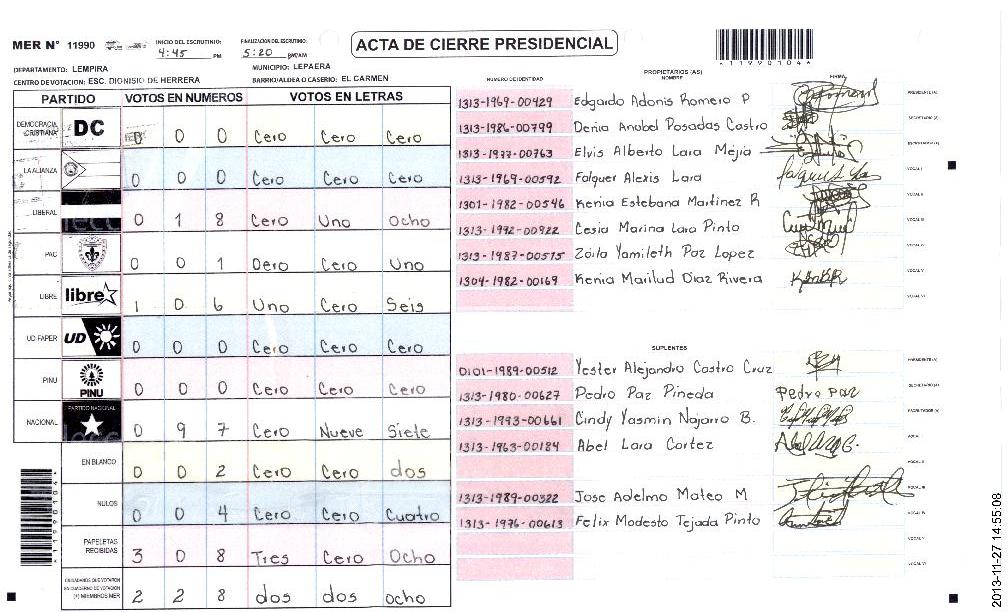 MER Nº 11990
INICIO DEL ESCRUTINIO: 4:45 PM
FINALIZACION DEL ESCRUTINIO: 5:20
ACTA DE CIERRE PRESIDENCIAL
*119901041*
DEPARTAMENTO: LEMPIRA
MUNICIPIO: LEPAERA
CENTRO DE VOTACION: ESC. DIONISIO DE HERRERA
BARRIO/ALDEA O CASERIO: EL CARMEN
PARTIDO VOTOS EN NUMEROS VOTOS EN LETRAS
DEMOCRACIA CRISTIANA DC 0 0 0 Cero Cero Cero
LA ALIANZA 0 0 0 Cero Cero Cero
LIBERAL 0 1 8 Cero Uno Ocho
PAC 0 0 1 Cero Cero Uno
LIBRE libre 1 0 6 Uno Cero Seis
UD-FAPER UD 0 0 0 Cero Cero Cero
PINU PINU 0 0 0 Cero Cero Cero
NACIONAL PARTIDO NACIONAL 0 9 7 Cero Nueve Siete
EN BLANCO 0 0 2 Cero Cero dos
NULOS 0 0 4 Cero Cero Cuatro
PAPELETAS RECIBIDAS 3 0 8 Tres Cero Ocho
CIUDADANOS QUE VOTARON EN CUADERNO DE VOTACION (+) MIEMBROS MER 2 2 8 dos dos ocho
PROPIETARIOS (AS)
NUMERO DE IDENTIDAD NOMBRE FIRMA
1313-1969-00429 Edgardo Adonis Romero P PRESIDENTE (A)
1313-1986-00799 Denia Anabel Posadas Castro SECRETARIO (A)
1313-1977-00763 Elvis Alberto Lara Mejia
1313-1969-00592 Falquer Alexis Lara VOCAL I
1301-1982-00546 Kenia Estebana Martinez R VOCAL II
1313-1992-00922 Cesia Marina Lara Pinto VOCAL III
1313-1987-00575 Zoila Yamileth Paz Lopez VOCAL IV
1304-1982-00169 Kenia Marilud Diaz Rivera VOCAL V
VOCAL VI
SUPLENTES
0101-1989-00512 Yester Alejandro Castro Cruz PRESIDENTE (A)
1313-1980-00627 Pedro Paz Pineda Pedro Paz SECRETARIO (A)
1313-1993-00661 Cindy Yasmin Najarro B. ESCRUTADOR (A)
1313-1963-00184 Abel Lara Cortez
VOCAL II
1313-1989-00322 Jose Adelmo Mateo M VOCAL III
1313-1976-00613 Felix Modesto Tejada Pinto VOCAL IV
VOCAL V
VOCAL VI
2013-11-27 14:55:08